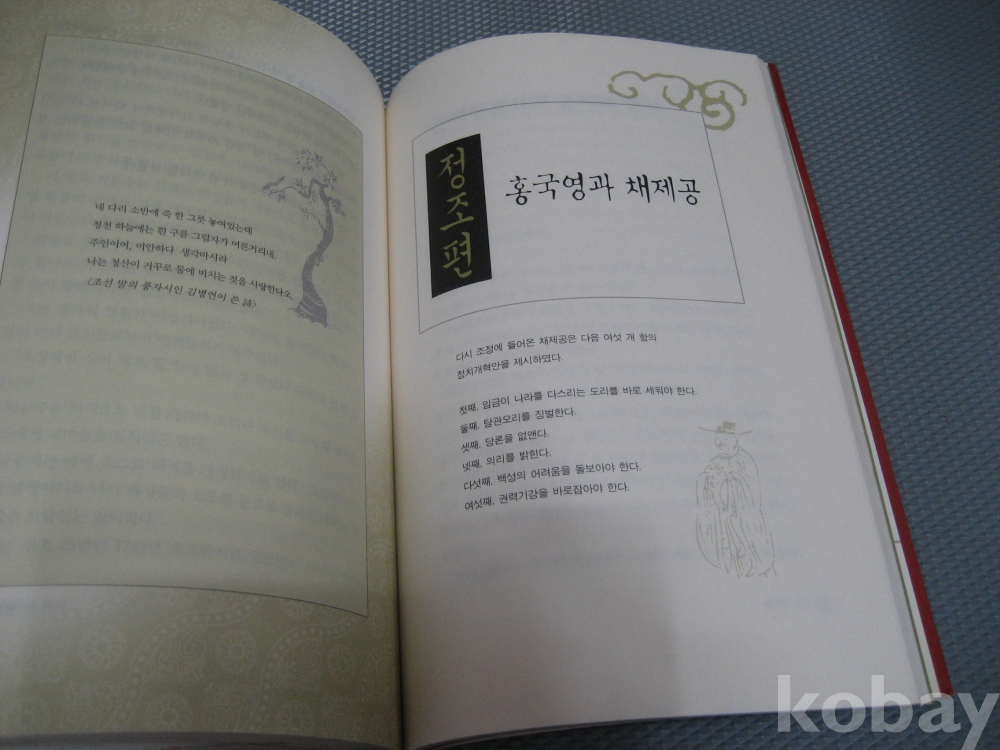 네 다리 소반에 죽 한 그릇 놓여있는데
청천 하늘에는 흰 구름 그림자가 어른거리네.
주인이여, 미안하다 생각마시라
나는 청산이 거꾸로 물에 비치는 것을 사랑한다오.
<조선 말의 풍자시인 김병연이 쓴 詩>
정조편
홍국영과 채제공
다시 조정에 들어온 채제공은 다음 여섯 개 항의
정치개혁안을 제시하였다.
첫째, 임금이 나라를 다스리는 도리를 바로 세워야 한다.
둘째, 탐관오리를 징벌한다.
셋째, 당론을 없앤다.
넷째, 의리를 밝힌다.
다섯째, 백성의 어려움을 돌보아야 한다.
여섯째, 권력기강을 바로잡아야 한다.
kobay